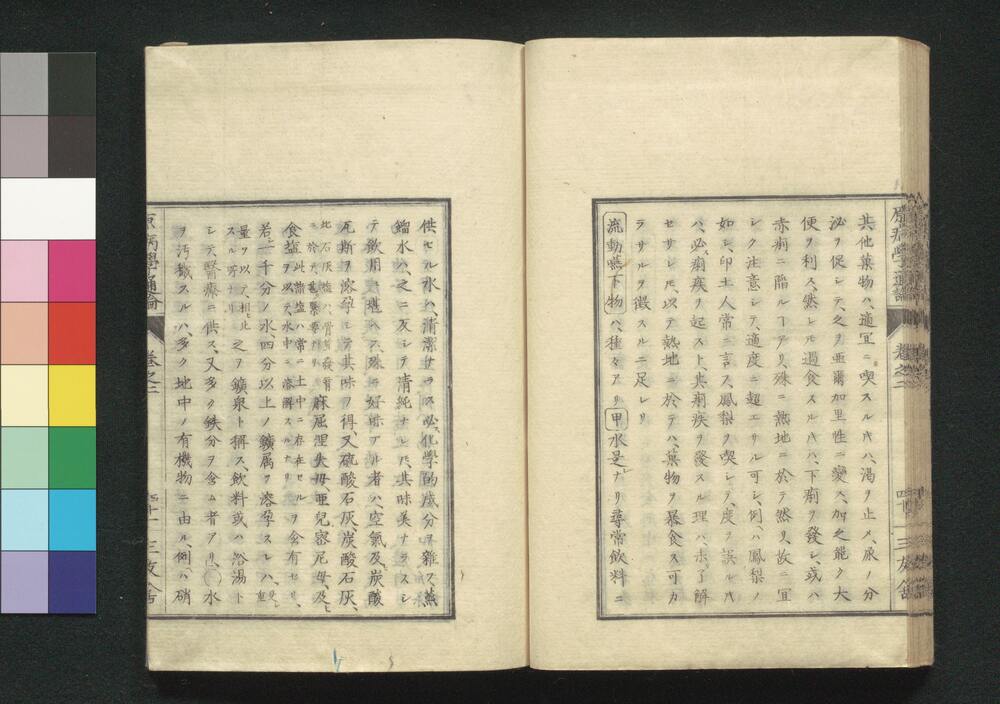 原病學通論
卷之二
四十
三友舍
其他菓物ハ、適宜ニ喫スル片ハ、渇ヲ止メ、尿ノ分
泌ヲ促シテ、之ヲ亜爾加里性ニ變ス、加之能ク大
便ヲ利ス、然レ𪜈過食スル片ハ、下痢ヲ發シ、或ハ
赤痢ニ陷ルヿアリ、殊ニ熱地ニ於テ然リ、故ニ宜
シク注意シテ、適度ニ超エサル可シ、例ハ鳳梨ノ
如シ、印土人常ニ言ス、鳳梨ヲ喫シテ、度ヲ誤ル片
ハ、必ス痢疾ヲ起スト、其痢疾ヲ發スル理ハ、未タ了解
セサレ𪜈、以テ熱地ニ於テハ、菓物ヲ暴食ス可カ
ラサルヲ徴スルニ足レリ
流動嚥下物ハ、種々アリ、甲水是ナリ、尋常飲料ニ
供セル水ハ、清潔ナラス、必ス化学的成分ヲ雜ス、蒸
餾水ハ、之ニ反シテ清純ナレ𪜈、其味美ナラスシ
テ飲用ニ堪ヘス、殊ニ好味アル者ハ、空氣及炭酸
瓦斯ヲ溶孕シテ其味ヲ得、又硫酸石灰、炭酸石灰、
此石灰塩ハ、骨質發育
ニ於テ、甚緊要ナリ
麻屈涅失母亜兒容尼母、及ヒ
食塩
此諸塩ハ常ニ土中ニ存在セル
ヲ以テ、水中ニ溶解スルナリ
ヲ含有セリ、
若シ一千分ノ水、四分以上ノ鑛属ヲ溶孕スレハ、
量ヲ以テ、相比
スル所ナリ
之ヲ鑛泉ト稱ス、飲料或ハ浴湯ト
シテ、醫療ニ供ス、又多ク鉄分ヲ含ム者アリ、○水
ヲ汚穢スルハ、多ク地中ノ有機物ニ由ル、例ハ硝
原病學通論
卷之二
四十一
三友舍